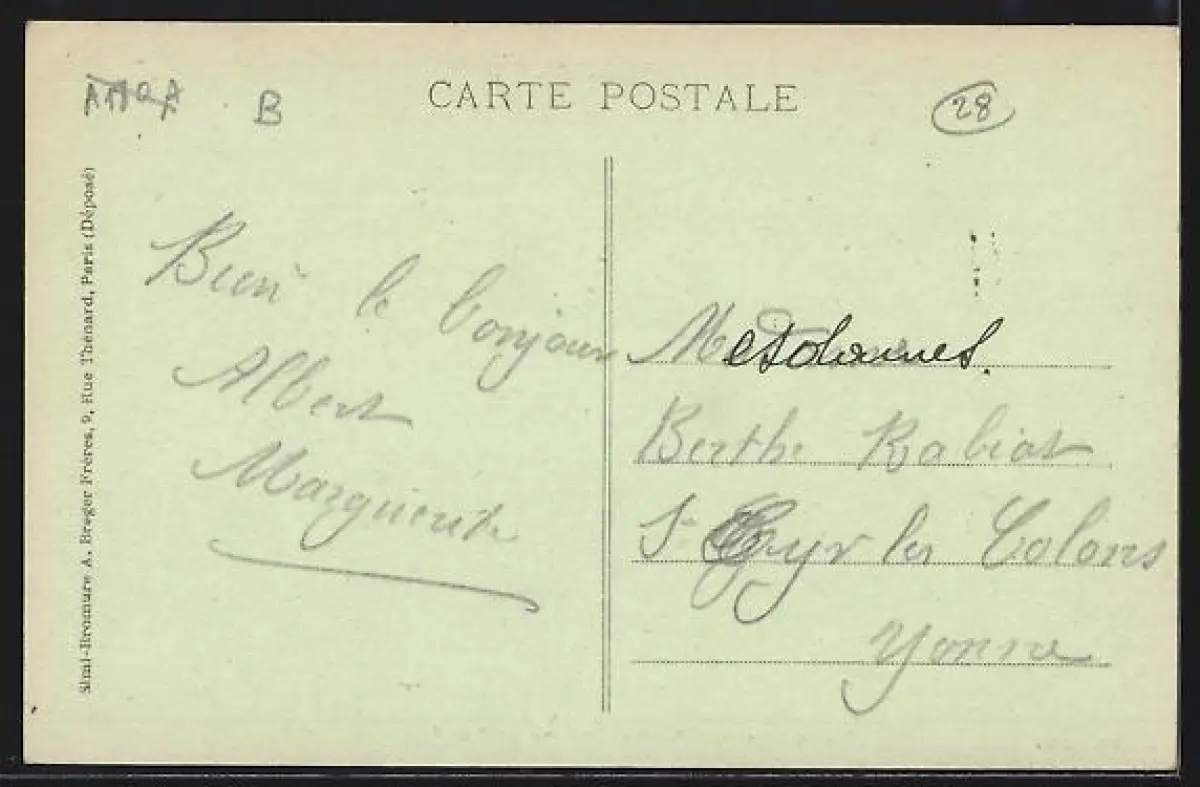 CARTE POSTALE
B
28
Semi-Bromure A. Breger Frères, 9, Rue Thénard, Paris (Déposé)
Bien le bonjour
Albert
Marguerite
Berthe Rabiat
St Cyr les Colons
Yonne